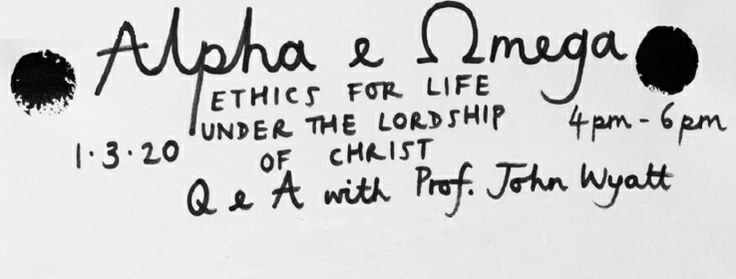 Alpha e Ωmega
ETHICS FOR LIFE
UNDER THE LORDSHIP
OF CHRIST
1·3·20
4pm - 6pm
Q e A with Prof. John Wyatt